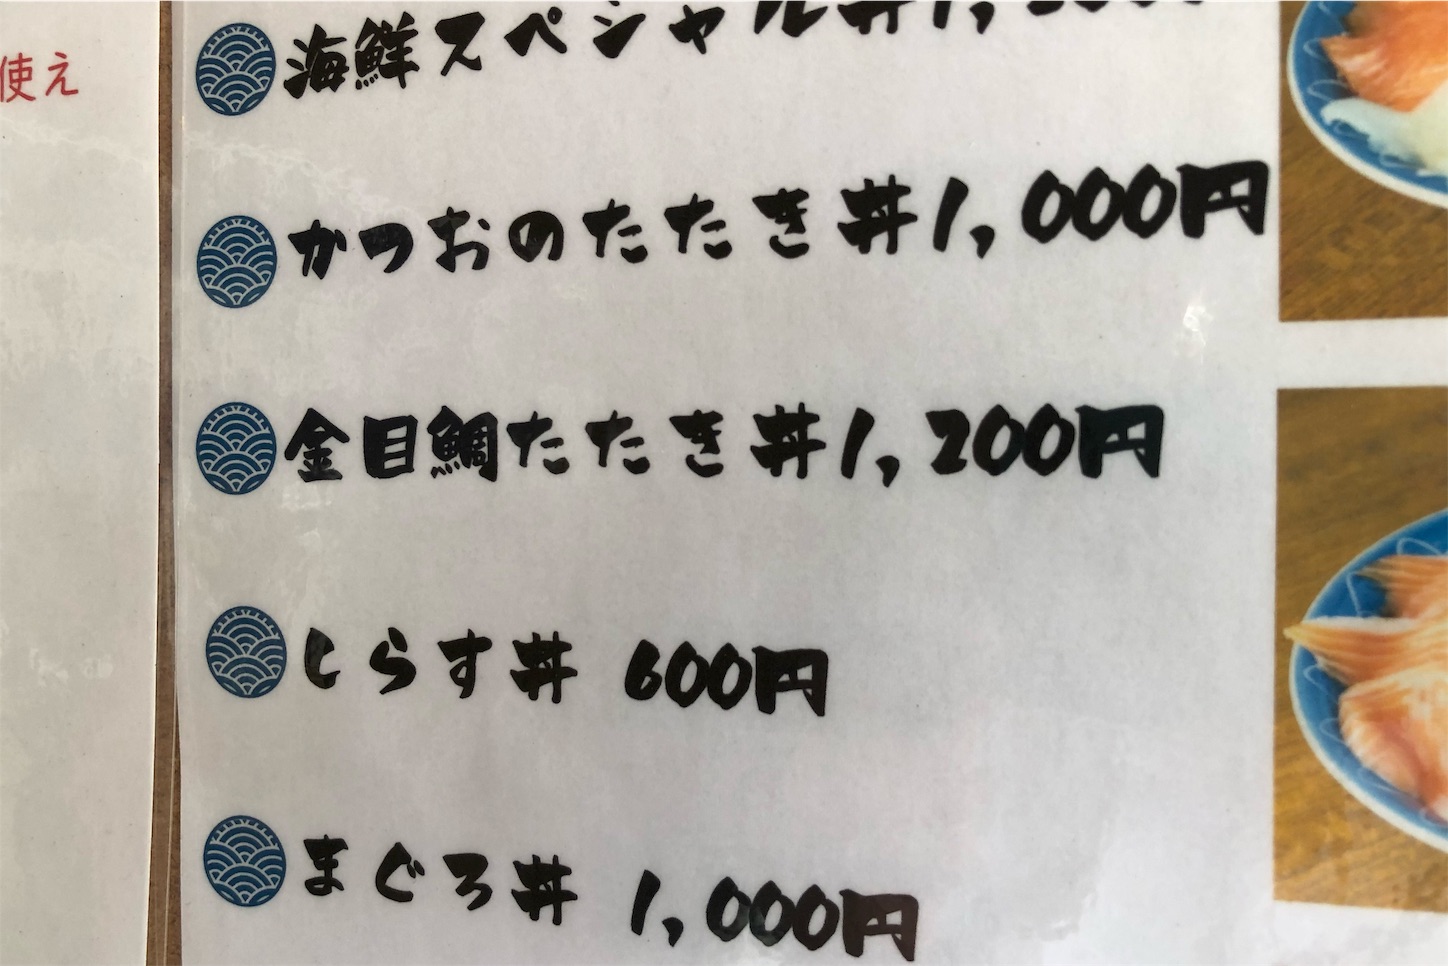 使え
海鮮スペシャル丼1,
かつおのたたき丼1,000円
金目鯛たたき丼1,200円
しらす丼 600円
まぐろ丼 1,000円